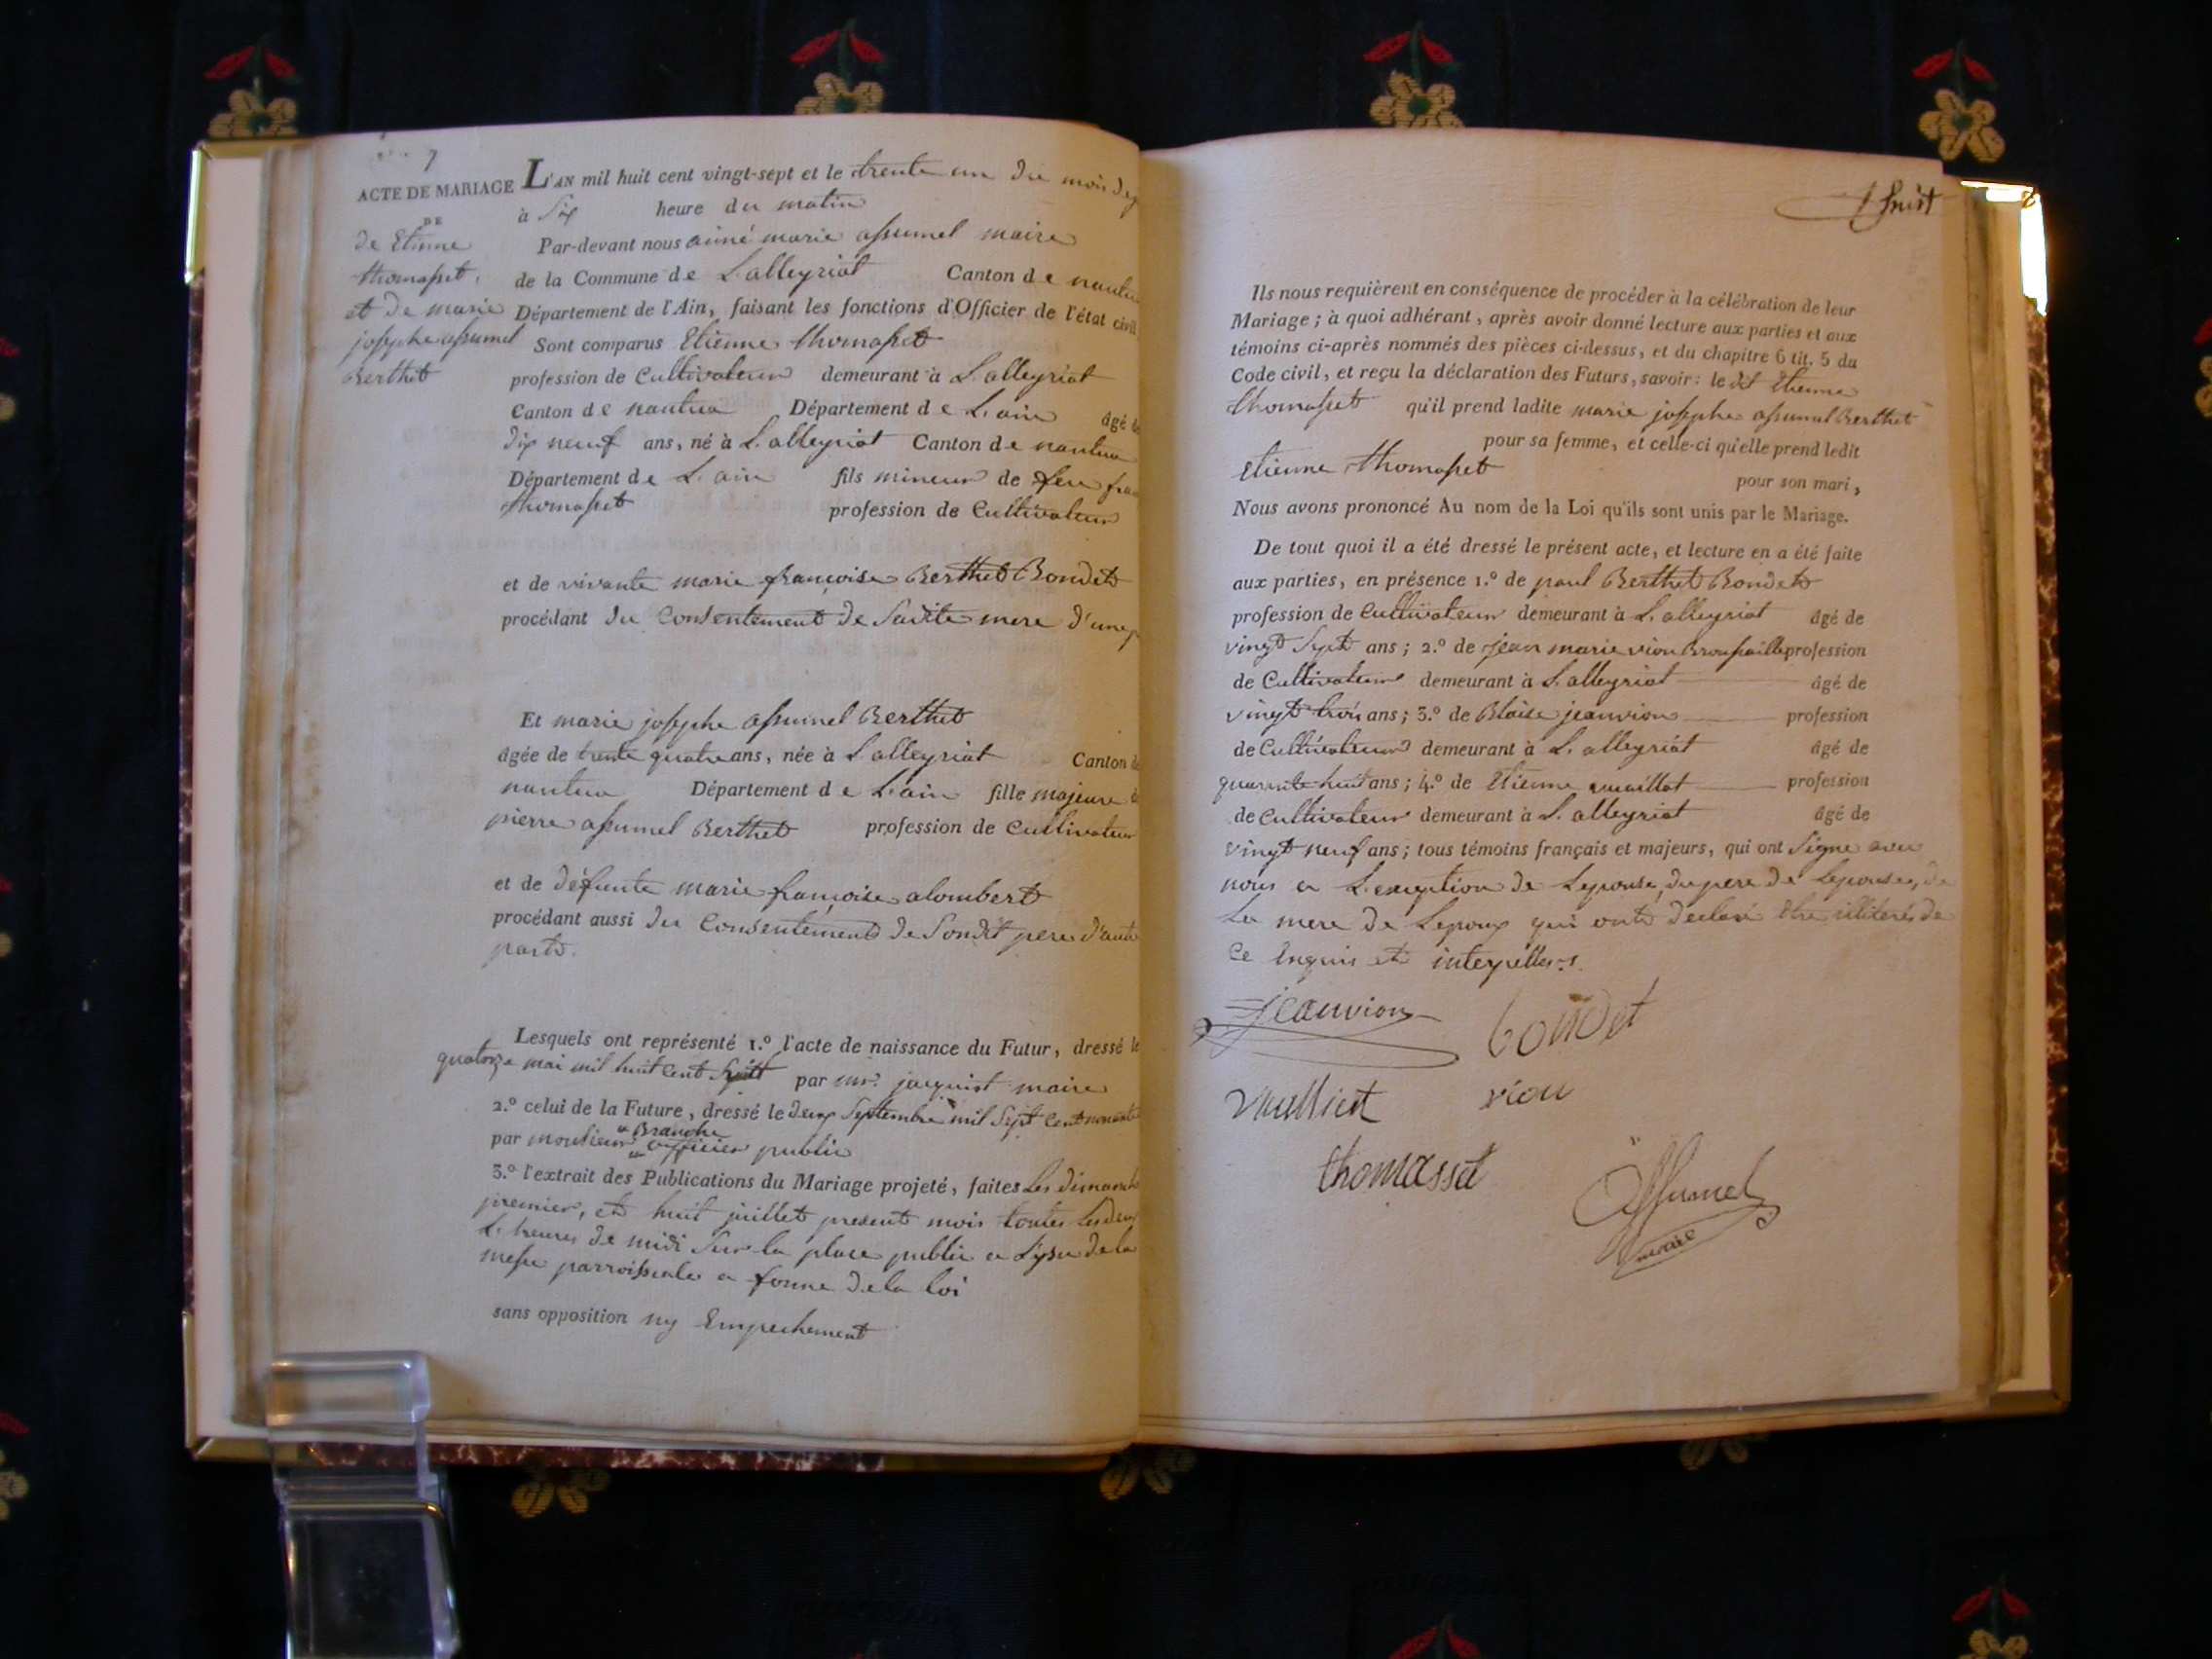 7
ACTE DE MARIAGE
DE
de Etienne
thomasset
et de marie
josephe assumel
Berthet
L'AN mil huit cent vingt-sept et le trente un du mois de
à Six heure du matin
Par-devant nous aimé marie assumel maire
de la Commune de L'alleyriat Canton de nantua
Département de l'Ain, faisant les fonctions d'Officier de l'état civil
Sont comparus Etienne thomasset
profession de Cultivateur demeurant à L'alleyriat
Canton de nantua Département de L'ain âgé de
dix neuf ans, né à L'alleyriat Canton de nantua
Département de L'ain fils mineur de feu
thomasset profession de Cultivateur
et de vivante marie françoise Berthet Bondet
procédant du Consentement de Sadite mere d'une
Et marie josephe assumel Berthet
âgée de trente quatre ans, née à L'alleyriat Canton de
nantua Département de L'ain fille majeure de
pierre assumel Berthet profession de Cultivateur
et de défunte marie françoise alombert
procédant aussi du Consentement de Sondit pere d'autre
part.
Lesquels ont représenté 1.º l'acte de naissance du Futur, dressé le
quatorze mai mil huit cent huit par mr. jacquiot maire
2.º celui de la Future, dressé le deux Septembre mil Sept cent
par monsieur Branche officier public
3.º l'extrait des Publications du Mariage projeté, faites Les dimanche
premier, et huit juillet present mois toutes Les deux
L'heures de midi Sur la place public a L'issu de la
messe parroissiale a forme de la loi
sans opposition ny Empechement
huit
Ils nous requièrent en conséquence de procéder à la célébration de leur
Mariage; à quoi adhérant, après avoir donné lecture aux parties et aux
témoins ci-après nommés des pièces ci-dessus, et du chapitre 6 tit. 5 du
Code civil, et reçu la déclaration des Futurs, savoir: le dit Etienne
thomasset qu'il prend ladite marie josephe assumel Berthet
pour sa femme, et celle-ci qu'elle prend ledit
Etienne thomasset pour son mari,
Nous avons prononcé Au nom de la Loi qu'ils sont unis par le Mariage.
De tout quoi il a été dressé le présent acte, et lecture en a été faite
aux parties, en présence 1.º de paul Berthet Bondet
profession de Cultivateur demeurant à L'alleyriat âgé de
vingt Sept ans; 2.º de jean marie vion Broussaille profession
de Cultivateur demeurant à L'alleyriat âgé de
vingt trois ans; 3.º de Blaise jeanvion profession
de Cultivateur demeurant à L'alleyriat âgé de
quarante huit ans; 4.º de Etienne vuaillat profession
de Cultivateur demeurant à L'alleyriat âgé de
vingt neuf ans; tous témoins français et majeurs, qui ont Signe avec
nous a L'exception de Lepouse, du pere de Lepouse, de
La mere de Lepoux qui ont déclaré être illiterés de
Ce Enquis et interpellés
jeanvion bondet
vuilliet vion
thomasset
Assumel
maire